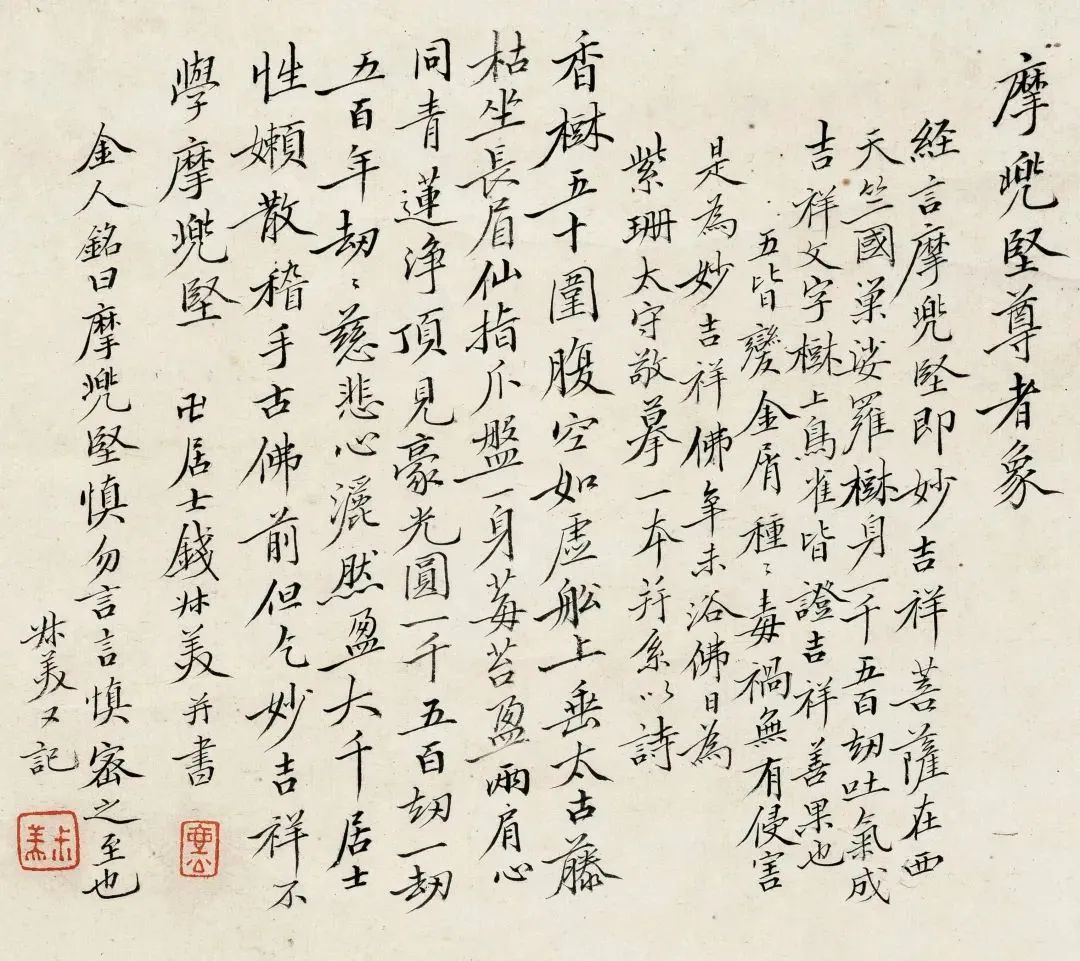 摩兠堅尊者象
経言摩兠堅即妙吉祥菩薩在西
天竺國巢娑羅樹身一千五百劫吐氣成
吉祥文字樹上鳥雀皆證吉祥善果也
五皆變金屑種〻毒禍無有侵害
是為妙吉祥佛辛未浴佛日為
紫珊太守敬摹一本并系以詩
香樹五十圍腹空如虛船上垂太古藤
枯坐長眉仙指爪盤一身莓苔盈兩肩心
同青蓮淨頂見豪光圓一千五百劫一劫
五百年劫〻慈悲心灑然盈大千居士
性嬾散稽手古佛前但乞妙吉祥不
學摩兠堅 卍居士錢叔美并書
金人銘曰摩兠堅慎勿言言慎密之至也
叔美又記
叔美